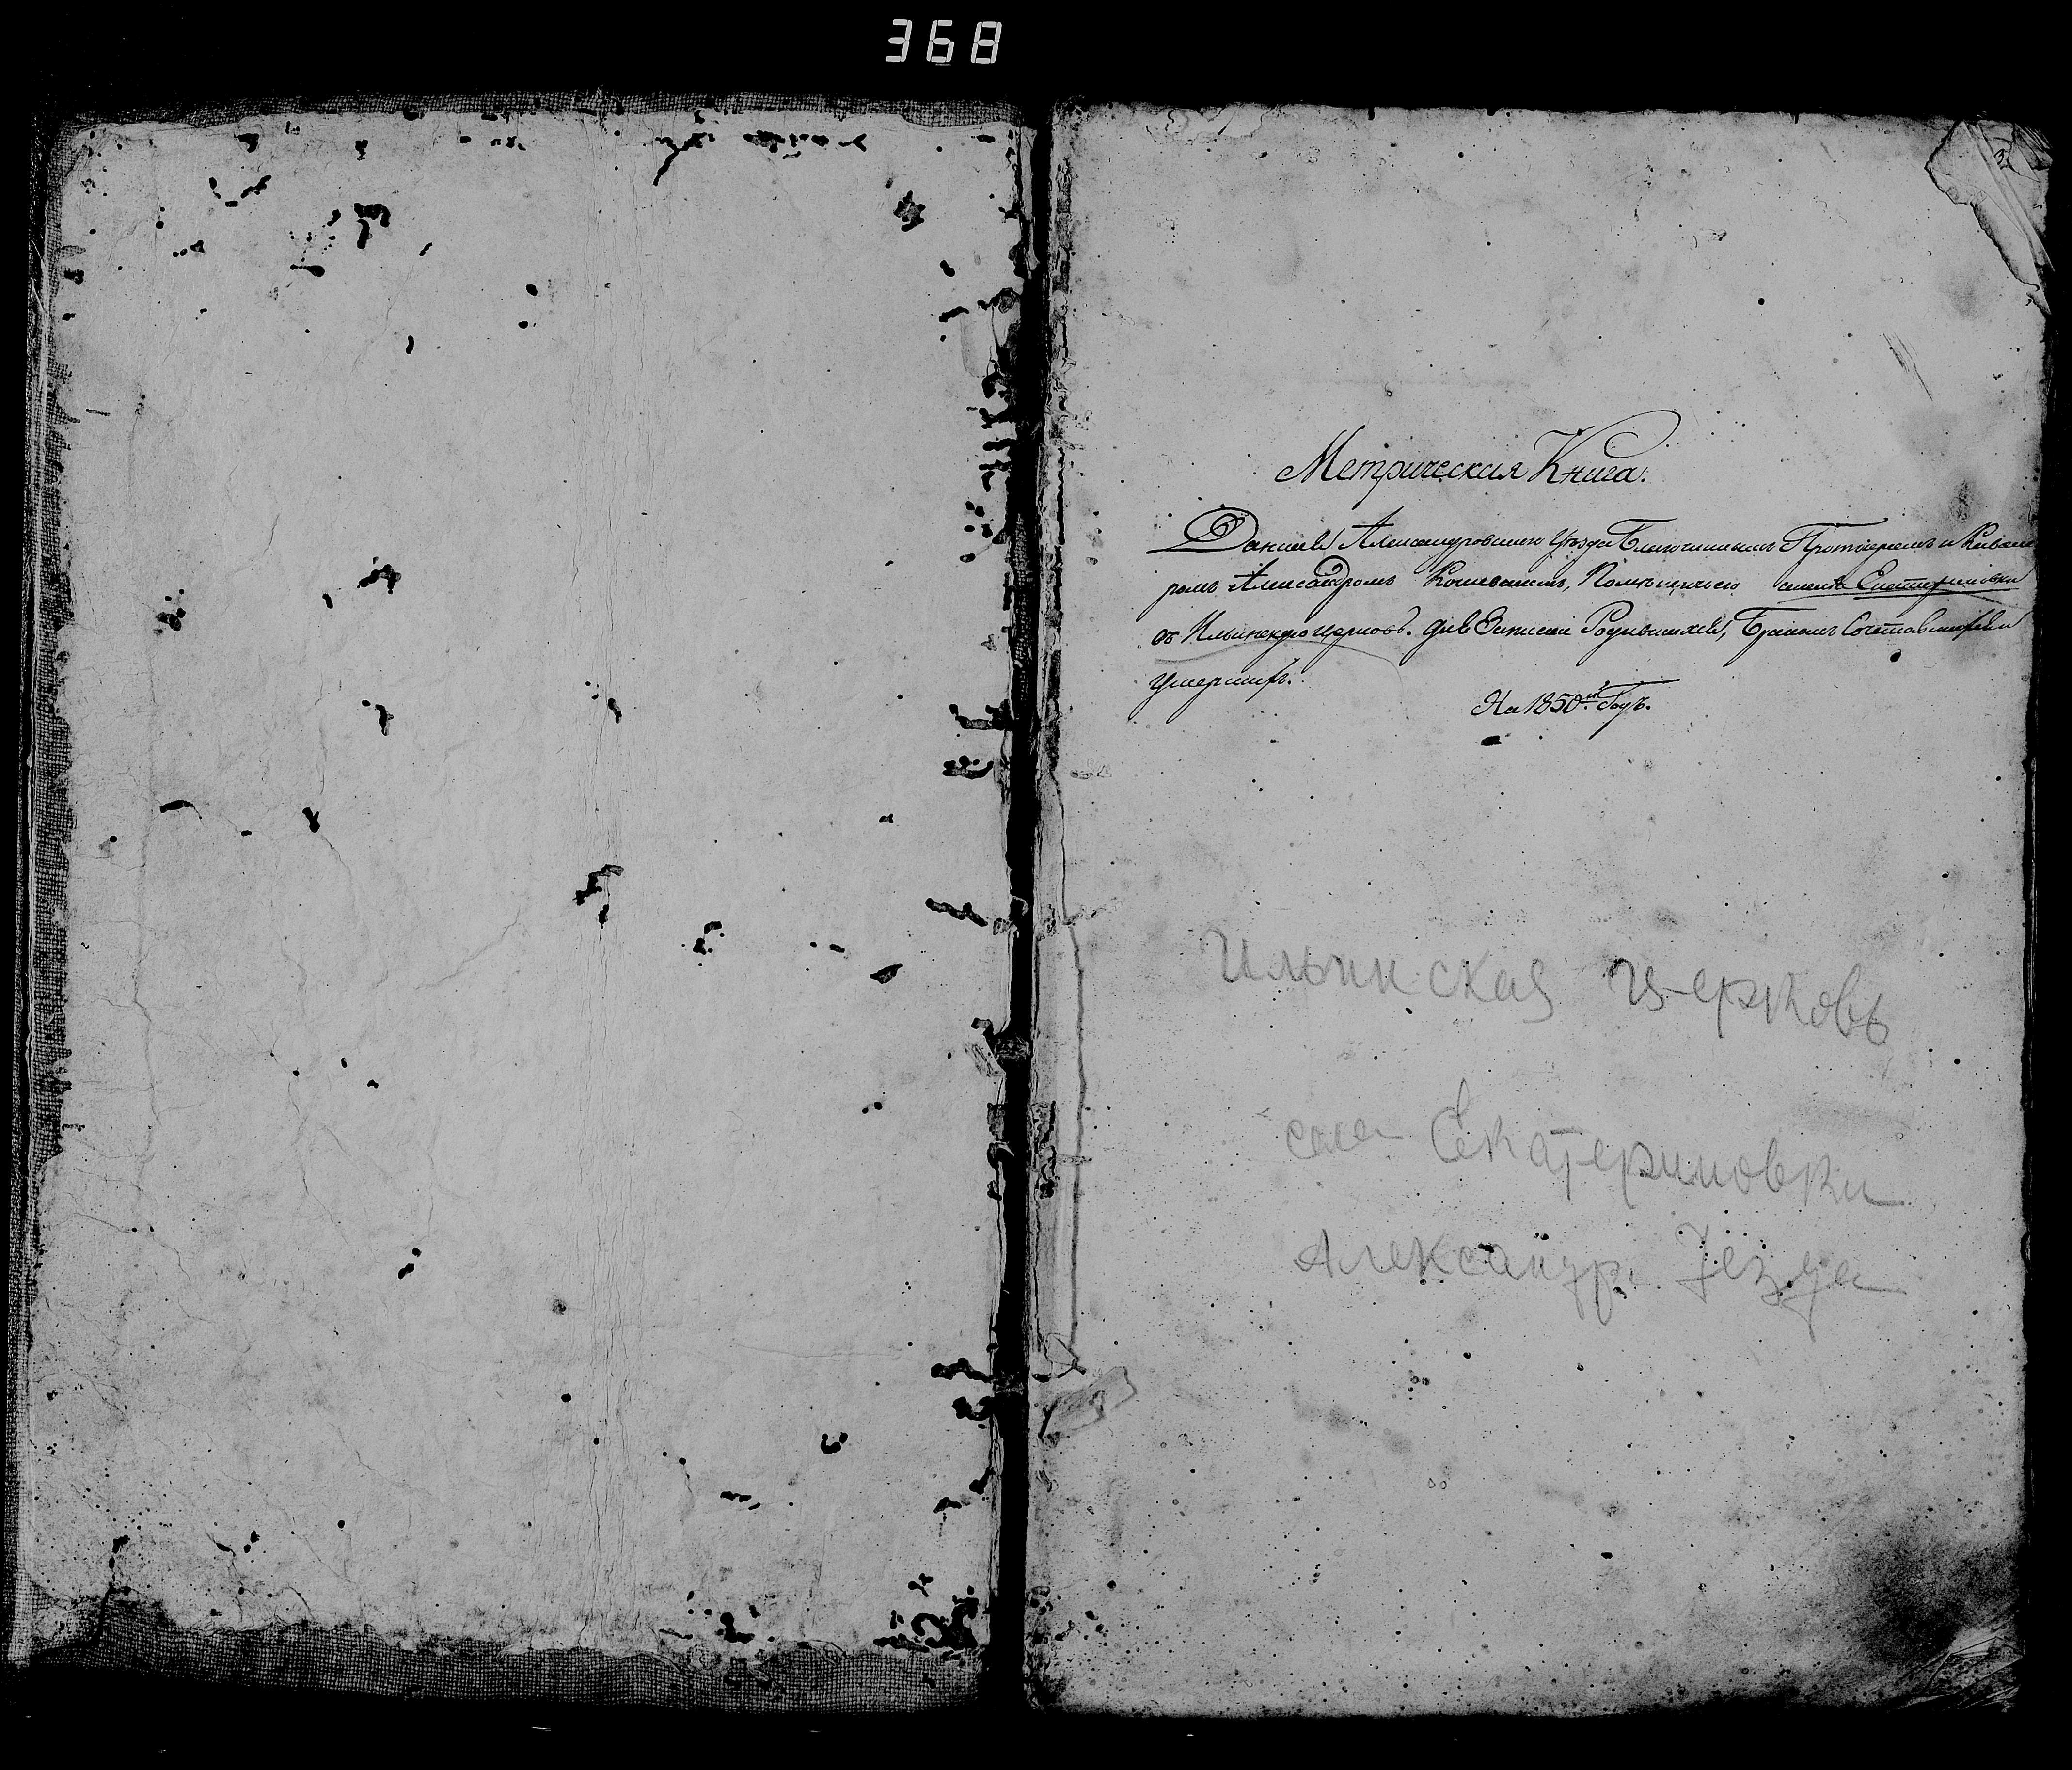 368
3
Метрическая Книга.
Данная Александровскаго Уезда Благочиннымъ Протоіереемъ и Кавале
ромъ Александромъ Помѣщичьего имения Екатериновки
въ Ильинскую церковь. для Записки Родившихся, Бракомъ Сочетавшихся и
Умершихъ.
На 1850й Годъ.
Ильинская церковь
села Екатериновки
Александр. Уезда